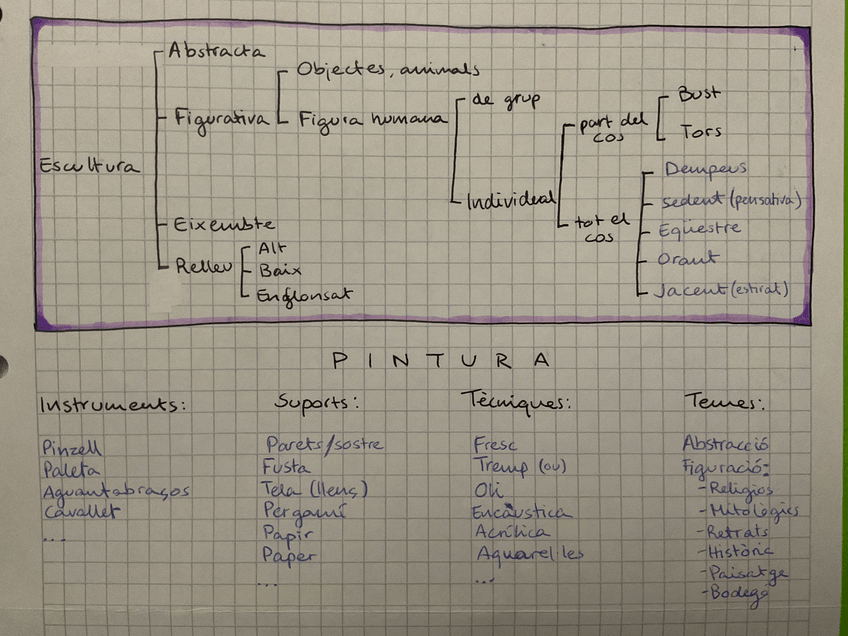 Escultura
Abstracta
Figurativa
Objectes, animals
Figura humana
de grup
Individeal
part del
cos
Bust
Tors
tot el
cos
Dempeus
sedent (pensativa)
Eqüestre
Orant
Jacent (estirat)
Eixembte
Relleu
Alt
Baix
Englonsat
PINTURA
Instruments:
Pinzell
Paleta
Aguantabraços
Cavallet
...
Suports:
Parets/sostre
Fusta
Tela (llenç)
Pergamí
Papir
Paper
...
Tècniques:
Fresc
Tremp (ou)
Oli
Encàustica
Acrílica
Aquarel·les
...
Temes:
Abstracció
Figuració:
-Religiós
-Mitològics
-Retrats
-Històric
-Paisatge
-Bodegó